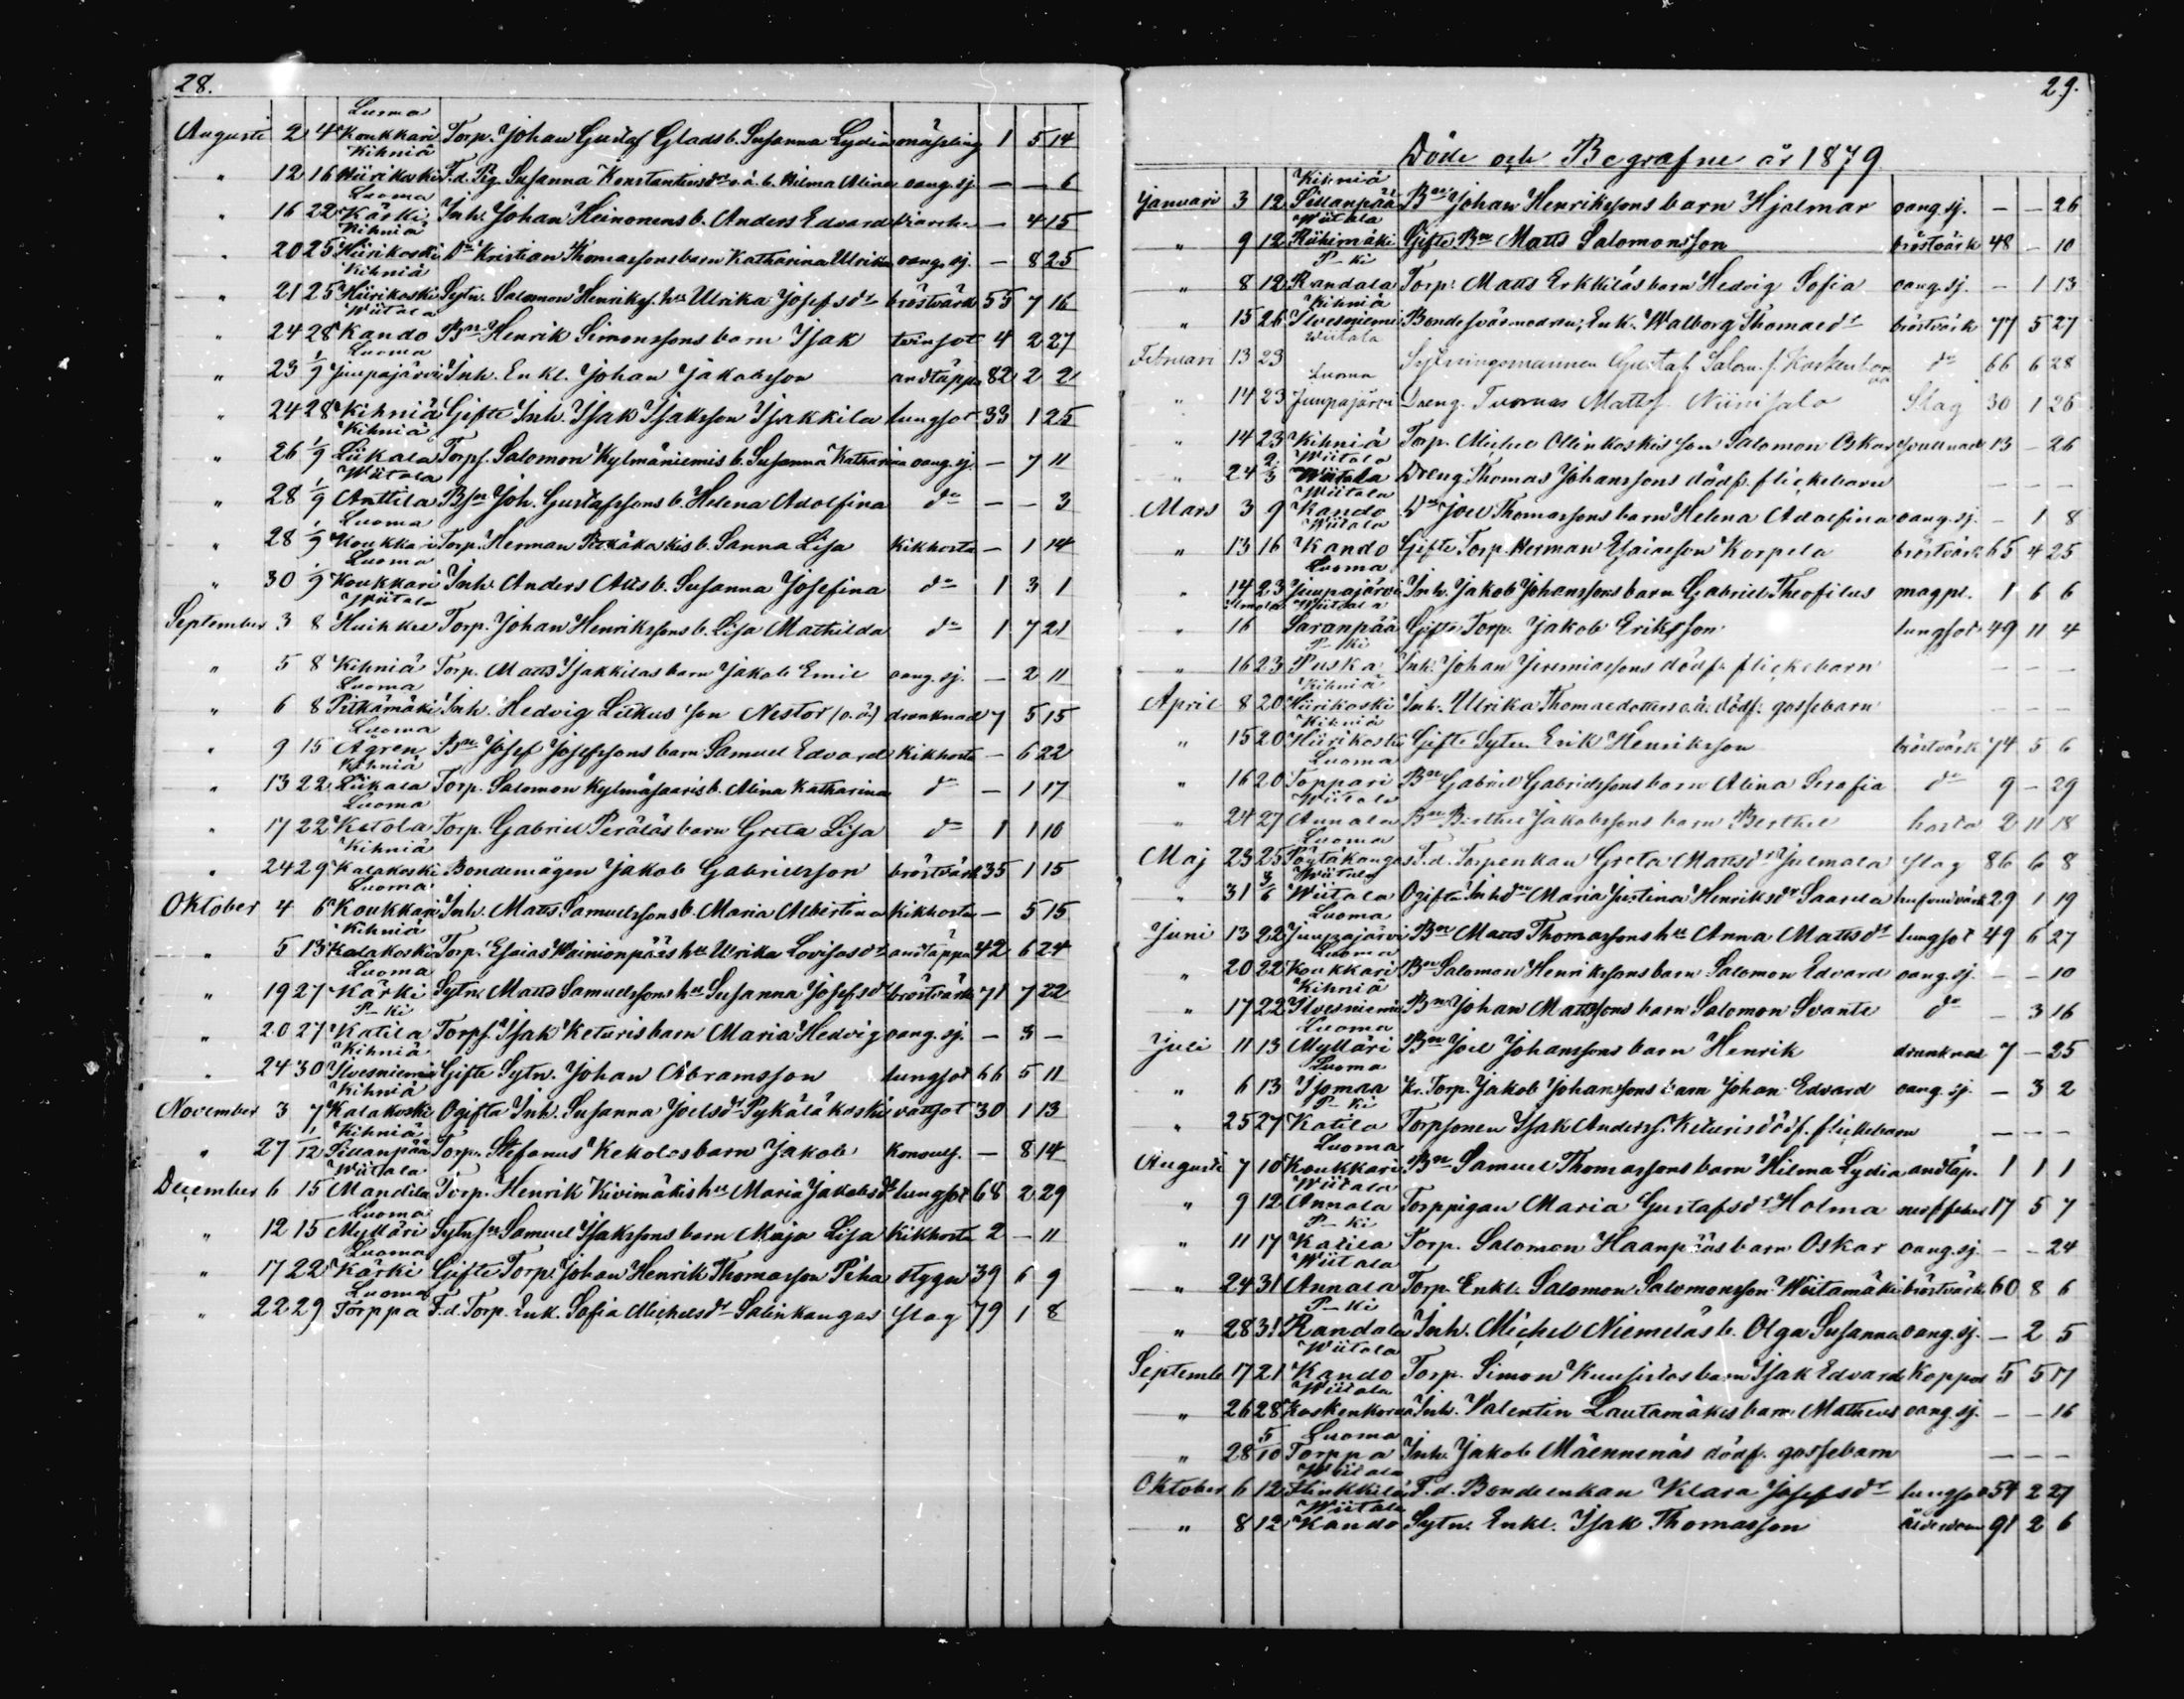 28.
Luoma
Augusti 2 4 Koukkari Torp. Johan Gustaf Glads b. Susanna Lydia mässling 1 5 14
Kihniä
" 12 16 Hiirikoski F.d. Pig. Susanna Konstantinsdr o.ä. b. Hilma Alina oang. sj. — — 6
Luoma
" 16 22 Kärki Inh. Johan Heinonens b. Anders Edvard diarrhe — 4 15
Kihniä
" 20 25 Hiirikoski Dn Kristian Thomassons barn Katharina Ulrika oang. sj. — 8 25
Kihniä
" 21 25 Hiirikoski Sytn. Salomon Henrikss. hu Ulrika Josefsdr bröstvärk 55 7 16
Wiitala
" 24 28 Kando Bn Henrik Simonssons barn Isak tvinsot 4 2 27
Luoma
" 23 1/9 Juupajärvi Inh. Enkl. Johan Jakobsson andtäppa 82 2 2
" 24 28 Kihniä Gifte Inh. Isak Isaksson Isakkila lungsot 33 1 25
Kihniä
" 26 1/9 Liikala Torps. Salomon Kylmäniemis b. Susanna Katharina oang. sj. — 7 11
Wiitala
" 28 1/9 Anttila Bsn Joh. Gustafssons b. Helena Adolfina do — — 3
Luoma
" 28 1/9 Koukkari Torp. Herman Pitkäkoskis b. Sanna Lisa kikhosta — 1 14
Luoma
" 30 1/9 Koukkari Inh. Anders Alis b. Susanna Josefina do 1 3 1
Wiitala
September 3 8 Huikku Torp. Johan Henrikssons b. Lisa Mathilda do 1 7 21
" 5 8 Kihniä Torp. Matts Isakkilas barn Jakob Emil oang. sj. — 2 11
Luoma
" 6 8 Pitkämäki Inh. Hedvig Liikus son Nestor (o.ä.) drunknad 7 5 15
Luoma
" 9 15 Ågren Bn Josef Josefssons barn Samuel Edvard kikhosta — 6 22
Kihniä
" 13 22 Liikala Torp. Salomon Kylmäsaaris b. Alina Katharina do — 1 17
Luoma
" 17 22 Ketola Torp. Gabriel Peräläs barn Greta Lisa do 1 1 10
Kihniä
" 24 29 Kalakoski Bondemågen Jakob Gabrielsson bröstvärk 35 1 15
Luoma
Oktober 4 6 Koukkari Inh. Matts Samuelssons b. Maria Albertina kikhosta — 5 15
Kihniä
" 5 13 Kalakoski Torp. Esaias Wainionpääs hu Ulrika Lovisasdr andtäppa 42 6 24
Luoma
" 19 27 Kärki Sytn. Matts Samuelssons hu Susanna Josefsdr bröstvärk 71 7 22
P-ki
" 20 27 Katila Torps. Isak Keturis barn Maria Hedvig oang. sj. — 3 —
Kihniä
" 24 30 Ilvesniemi Gifte Sytn. Johan Abramsson lungsot 66 5 11
Kihniä
November 3 7 Kalakoski Ogifta Inh. Susanna Joelsdr Pykäläkoski vattsot 30 1 13
Kihniä
" 27 1/12 Sillanpää Torp. Stefanus Kekolas barn Jakob konvuls. — 8 14
Wiitala
December 6 15 Mandila Torp. Henrik Kivimäkis hu Maria Jakobsdr lungsot 68 2 29
Luoma
" 12 15 Mylläri Sytnsn Samuel Isakssons barn Maja Lisa kikhosta 2 — 11
Luoma
" 17 22 Kärki Gifte Torp. Johan Henrik Thomasson Piha stygn 39 6 9
Luoma
" 22 29 Torppa F.d. Torp. Enk. Sofia Michelsdr Salinkangas slag 79 1 8
29.
Döde och Begrafne år 1879
Kihniä
Januari 3 12 Sillanpää Bn Johan Henrikssons barn Hjalmar oang. sj. — — 26
Wiitala
" 9 12 Riihimäki Gifte Bn Matts Salomonsson bröstvärk 48 — 10
P-ki
" 8 12 Randala Torp. Matts Erkkiläs barn Hedvig Sofia oang. sj. — 1 13
Kihniä
" 15 26 Ilvesniemi Bondesvärmodren, Enk. Walborg Thomasdr bröstvärk 77 5 27
Wiitala
Februari 13 23 Sytningsmannen Gustaf Salom. s. Koskenkorva do 66 6 28
Luoma
" 14 23 Juupajärvi Dreng. Tuomas Mattss. Niinisalo Slag 30 1 26
" 14 23 Kihniä Torp. Michel Ollinkoskis son Salomon Oskar svullnad 13 — 26
Wiitala
" 24 2/3 Wiitala Dreng Thomas Johanssons dödf. flickebarn — — —
Wiitala
Mars 3 9 Kando Dn Joel Thomassons barn Helena Adolfina oang. sj. — 1 8
Wiitala
" 13 16 Kando Gifte Torp. Herman Esaiasson Korpela bröstvärk 65 4 25
Luoma
" 14 23 Juupajärvi Inh. Jakob Johanssons barn Gabriel Theofilus magpl. 1 6 6
Ilmola Wiitala
" 16 Saranpää Gifte Torp. Jakob Eriksson lungsot 49 11 4
P-ki
" 16 23 Puska Inh. Johan Jeremiassons dödf. flickebarn — — —
Kihniä
April 8 20 Hiirikoski Inh. Ulrika Thomaedotters o.ä. dödf. gossebarn — — —
Kihniä
" 15 20 Hiirikoski Gifte Sytn. Erik Henriksson bröstvärk 74 5 6
Luoma
" 16 20 Toppari Bn Gabriel Gabrielssons barn Alina Serafia do 9 — 29
Wiitala
" 24 27 Annala Bn Berthel Jakobssons barn Berthel hosta 2 11 18
Luoma
Maj 23 25 Pöytäkangas F.d. Torpenkan Greta Mattsdr Julmala slag 86 6 8
Wiitala
" 31 3/6 Wiitala Ogifta Inhdn Maria Justina Henriksdr Saarela hufvudvärk 29 1 19
Luoma
Juni 13 22 Juupajärvi Bn Matts Thomassons hu Anna Mattsdr lungsot 49 6 27
Luoma
" 20 22 Koukkari Bn Salomon Henrikssons barn Salomon Edvard oang. sj. — — 10
Kihniä
" 17 22 Ilvesniemi Bn Johan Mattssons barn Salomon Svante do — 3 16
Luoma
Juli 11 13 Mylläri Bn Joel Johanssons barn Henrik drunknad 7 — 25
Luoma
" 6 13 Isomaa Kr. Torp. Jakob Johanssons barn Johan Edvard oang. sj. — 3 2
P-ki
" 25 27 Katila Torpsonen Isak Anderss. Keturis dödf. flickebarn — — —
Luoma
Augusti 7 10 Koukkari Bn Samuel Thomassons barn Hilma Lydia andtäp. 1 1 1
Wiitala
" 9 12 Annala Torppigan Maria Gustafsdr Holma nerffeber 17 5 7
P-ki
" 11 17 Katila Torp. Salomon Haanpääs barn Oskar oang. sj. — — 24
Wiitala
" 24 31 Annala Torp. Enkl. Salomon Salomonsson Wiitamäki bröstvärk 60 8 6
P-ki
" 28 31 Randala Inh. Michel Niemeläs b. Olga Susanna oang. sj. — 2 5
Wiitala
Septembe 17 21 Kando Torp. Simon Kuusistos barn Isak Edvard koppor 5 5 17
Wiitala
" 26 28 Koskenkorva Inh. Valentin Lautamäkis barn Matheus oang. sj. — — 16
Luoma
" 28 5/10 Torppa Inh. Jakob Mäenmenäs dödf. gossebarn — — —
Wiitala
Oktober 6 12 Hinkkilä F.d. Bondeenkan Klara Josefsdr lungsot 54 2 27
Wiitala
" 8 12 Kando Sytn. Enkl. Isak Thomasson ålderdom 91 2 6